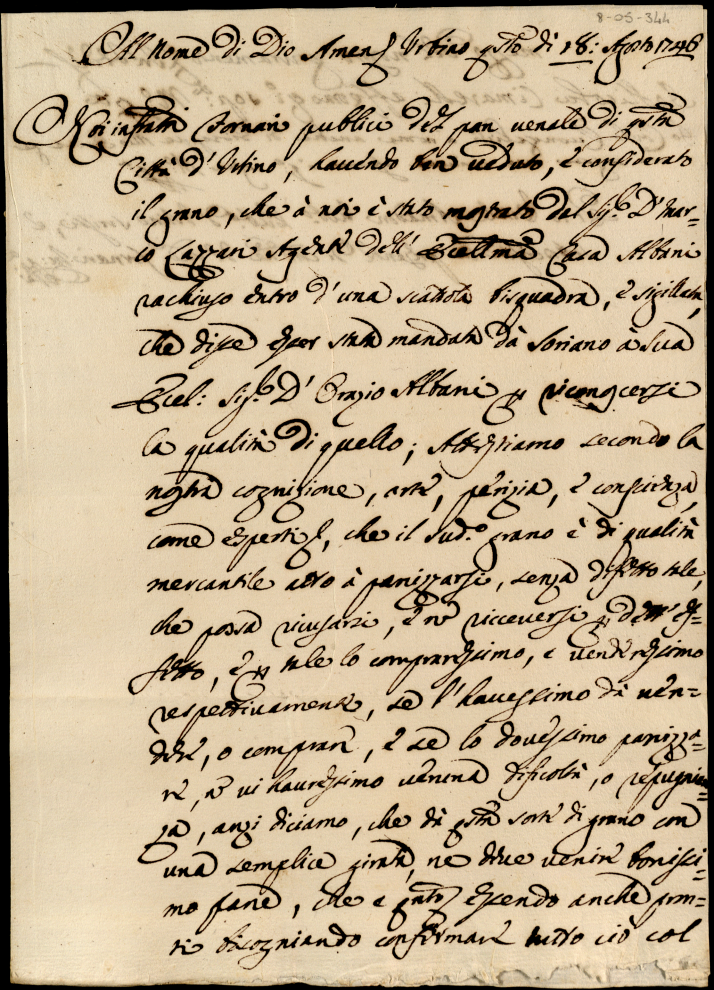 8-05-344
Al Nome di Dio Amen Urbino qsto dì 18: Agosto 1746
Noi infratti Fornari publici del pan venale di qsta
Città d'Urbino, havendo ben veduto, è considerato
il grano, che à noi è stato mostrato dal Sigr D. Mar=
co Lazzari Agente dell' Eccellma Casa Albani
rachiuso entro d'una scattola bisquadra, è sigillata,
che disse esser stata mandata dà Soriano à Sua
Eccel: Sigr D. Orazio Albani riconoscersi
la qualità di quello; Attestiamo secondo la
nostra cognizione, arte, perizia, è conscienza,
come esperti, che il sudo grano è di qualità
mercantile atto à panizzarsi, senza difetto tale,
che possa ricusarsi, è nò riceversi dett' ef=
fetto, è tale lo compraressimo, e venderessimo
respettivamente, se l'havessimo dà ven=
dere, o comprare, è se lo dovessimo panizza=
re, nò vi hauressimo veruna dificoltà, o repugnan=
za, anzi diciamo, che dà qsta sorte di grano con
una semplice girata, ne deve venire bonissi=
mo pane, che è qnto essendo anche pron=
ti bisogniando confermare tutto ciò col